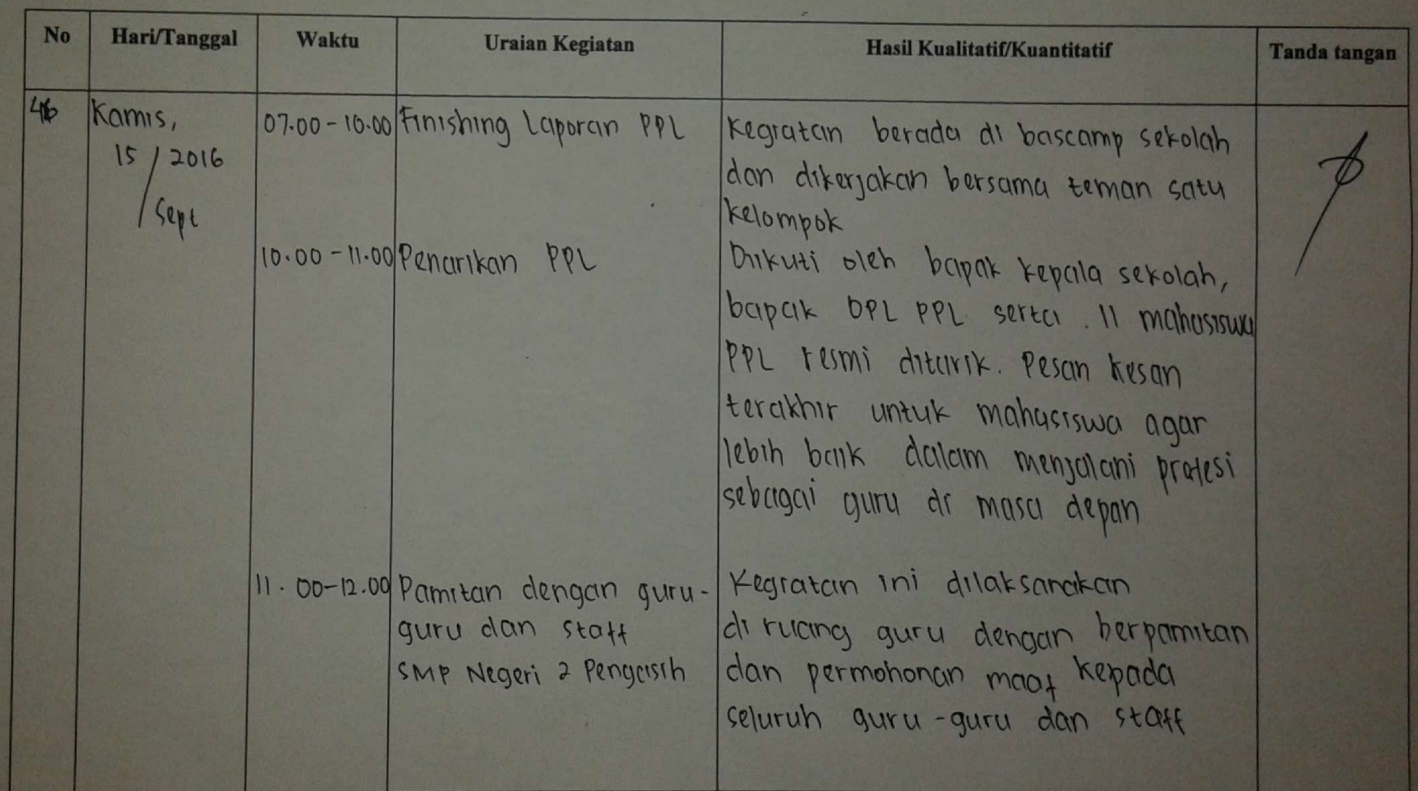 No Hari/Tanggal Waktu Uraian Kegiatan Hasil Kualitatif/Kuantitatif Tanda tangan
Kamis, 07.00-10.00 Finishing Laporan PPL Kegiatan berada di bascamp sekolah
15 / 2016 dan dikerjakan bersama teman satu
/ Sept kelompok
10.00-11.00 Penarikan PPL Diikuti oleh bapak kepala sekolah,
bapak DPL PPL serta . 11 mahasiswa
PPL resmi ditarik. Pesan kesan
terakhir untuk mahasiswa agar
lebih baik dalam menjalani profesi
sebagai guru di masa depan
11.00-12.00 Pamitan dengan guru- Kegiatan ini dilaksanakan
guru dan staff di ruang guru dengan berpamitan
SMP Negeri 2 Pengasih dan permohonan maaf kepada
seluruh guru-guru dan staff